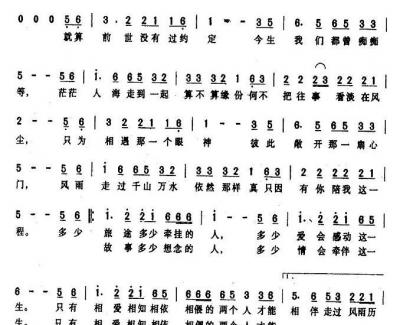 0 0 0 5 6 | 3. 2 2 1 1 6 | 1 - - 3 5 | 6. 5 6 5 3 3
就算 前世没有过约 定 今生 我们都曾痴痴
5 - - 5 6 | i. 6 6 5 3 2 | 3 3 2 1 6 3 | 2 2 2 3 2 2 2 1
等, 茫茫 人海走到一起 算不算缘份何不 把往事看淡在风
2 - - 5 6 | 3 2 2 1 1 6 | 1 - - 5 6 | 6. 5 6 5 3 3
尘, 只为 相遇那一个眼 神 彼此 敞开那一扇心
5 - - 5 6 | i. 6 6 5 3 2 | 3 3 2 1 6 3 | 2 2 2 2 2 1
门, 风雨 走过千山万水 依然那样真只因 有你陪我这一
5 - - 5 6 |: i. 2 2 i 6 6 6 | i - - 5 6 | i. 2 2 i 3 5
程。 多少 旅途多少牵挂的 人, 多少 爱会感动这一
故事多少想念的 人, 多少 情会牵伴这一
1.
6 - - 5 6 | i. 2 2 i 6 5 | 6 6 6 6 5 3 3 | 5 6 5 2 2 2 1
生。 只有 相爱相知相依 相偎的两个人才能 相伴走过风雨历
生。 只有 相爱相知相依 相偎的两个人才能